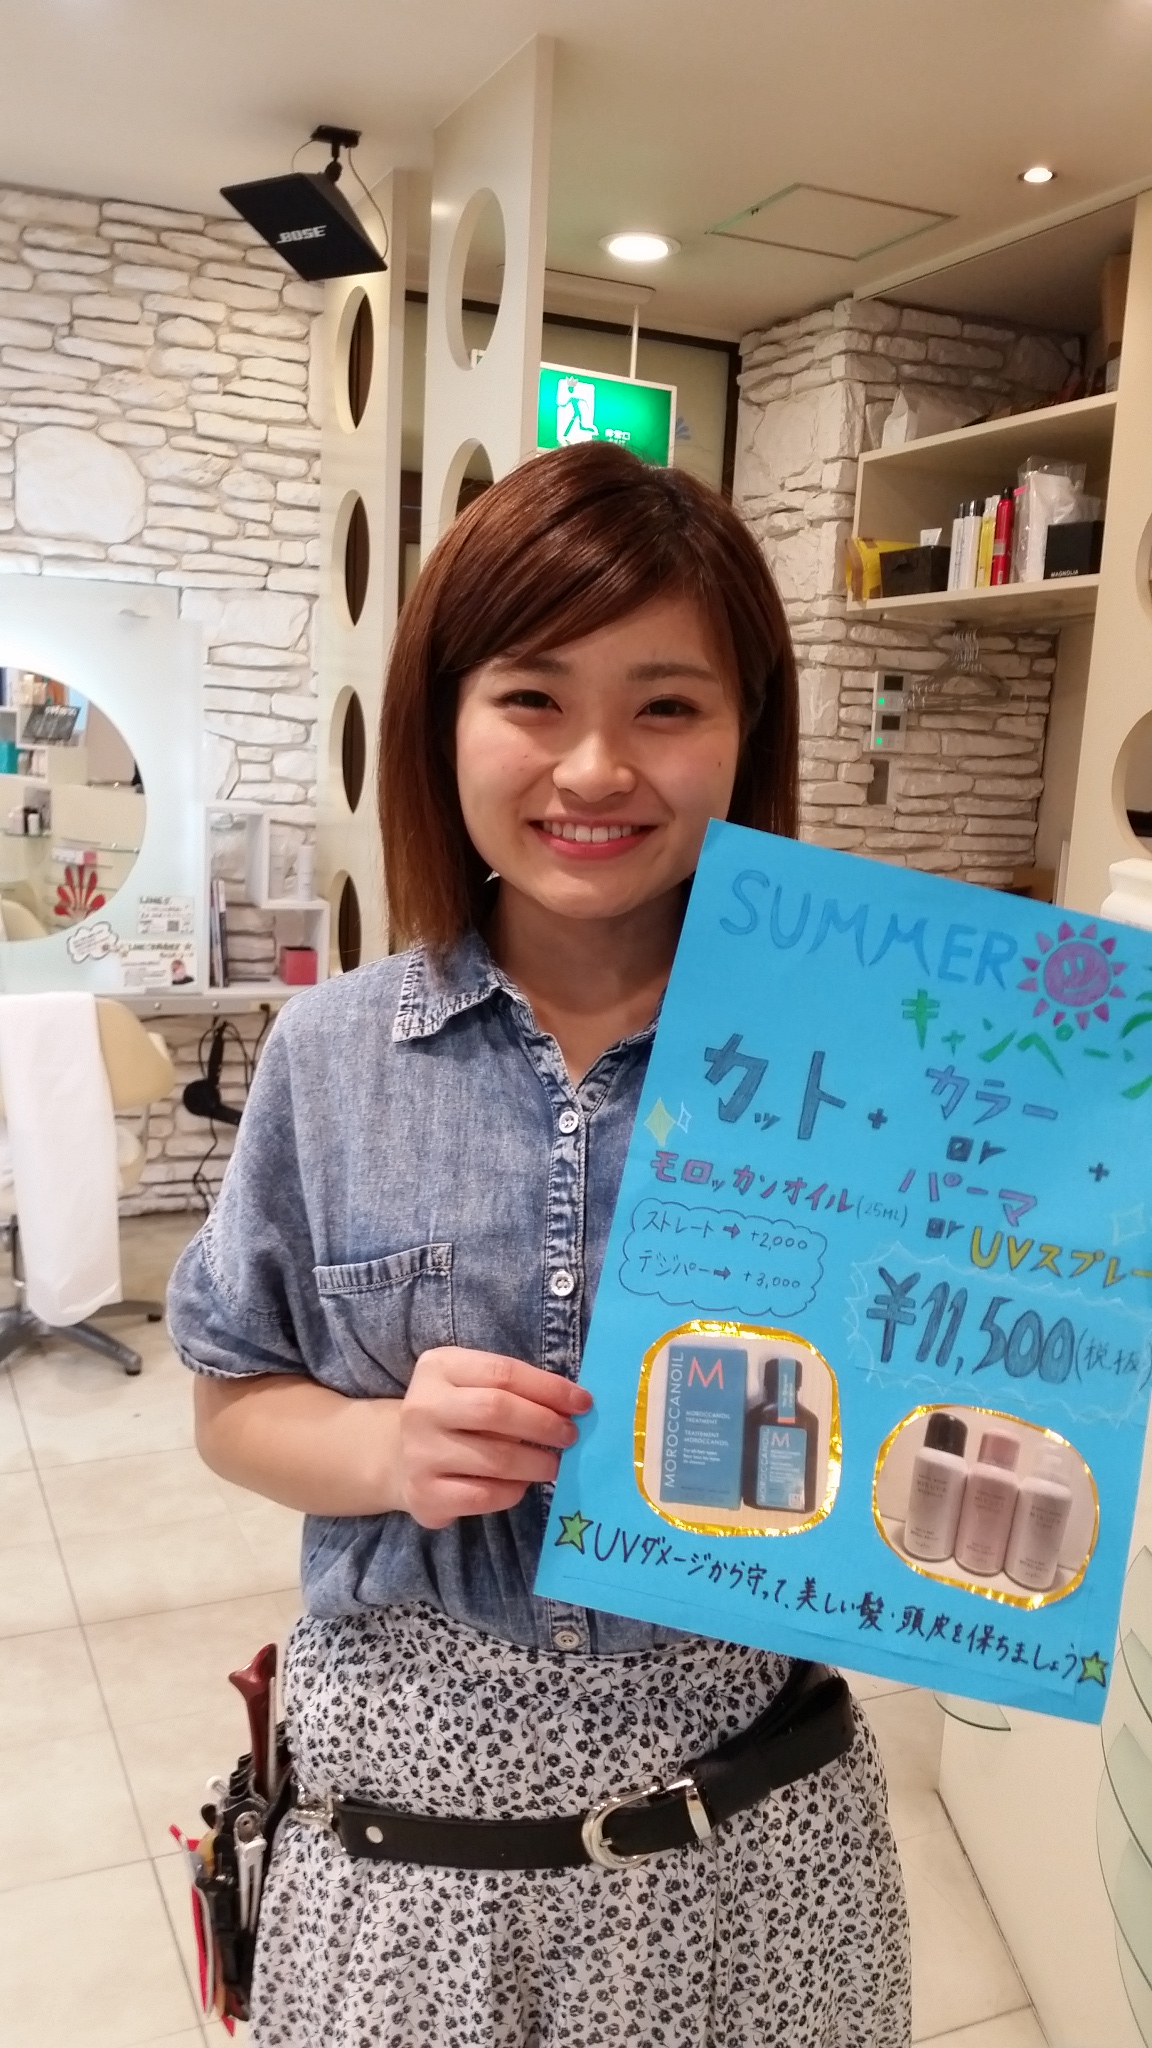 BOSE
非常口
EXIT
MAGNOLIA
LINE@
SUMMER
キャンペーン
カット + カラー
or
パーマ
+
モロッカンオイル(25ML)
or
UVスプレー
ストレート➡ +2,000
デジパー➡ +3,000
¥11,500(税抜
MOROCCANOIL
M
MOROCCANOIL
TREATMENT
TRAITEMENT
MOROCCANOIL
MOROCCANOIL
M
☆UVダメージから守って、美しい髪・頭皮を保ちましょう☆